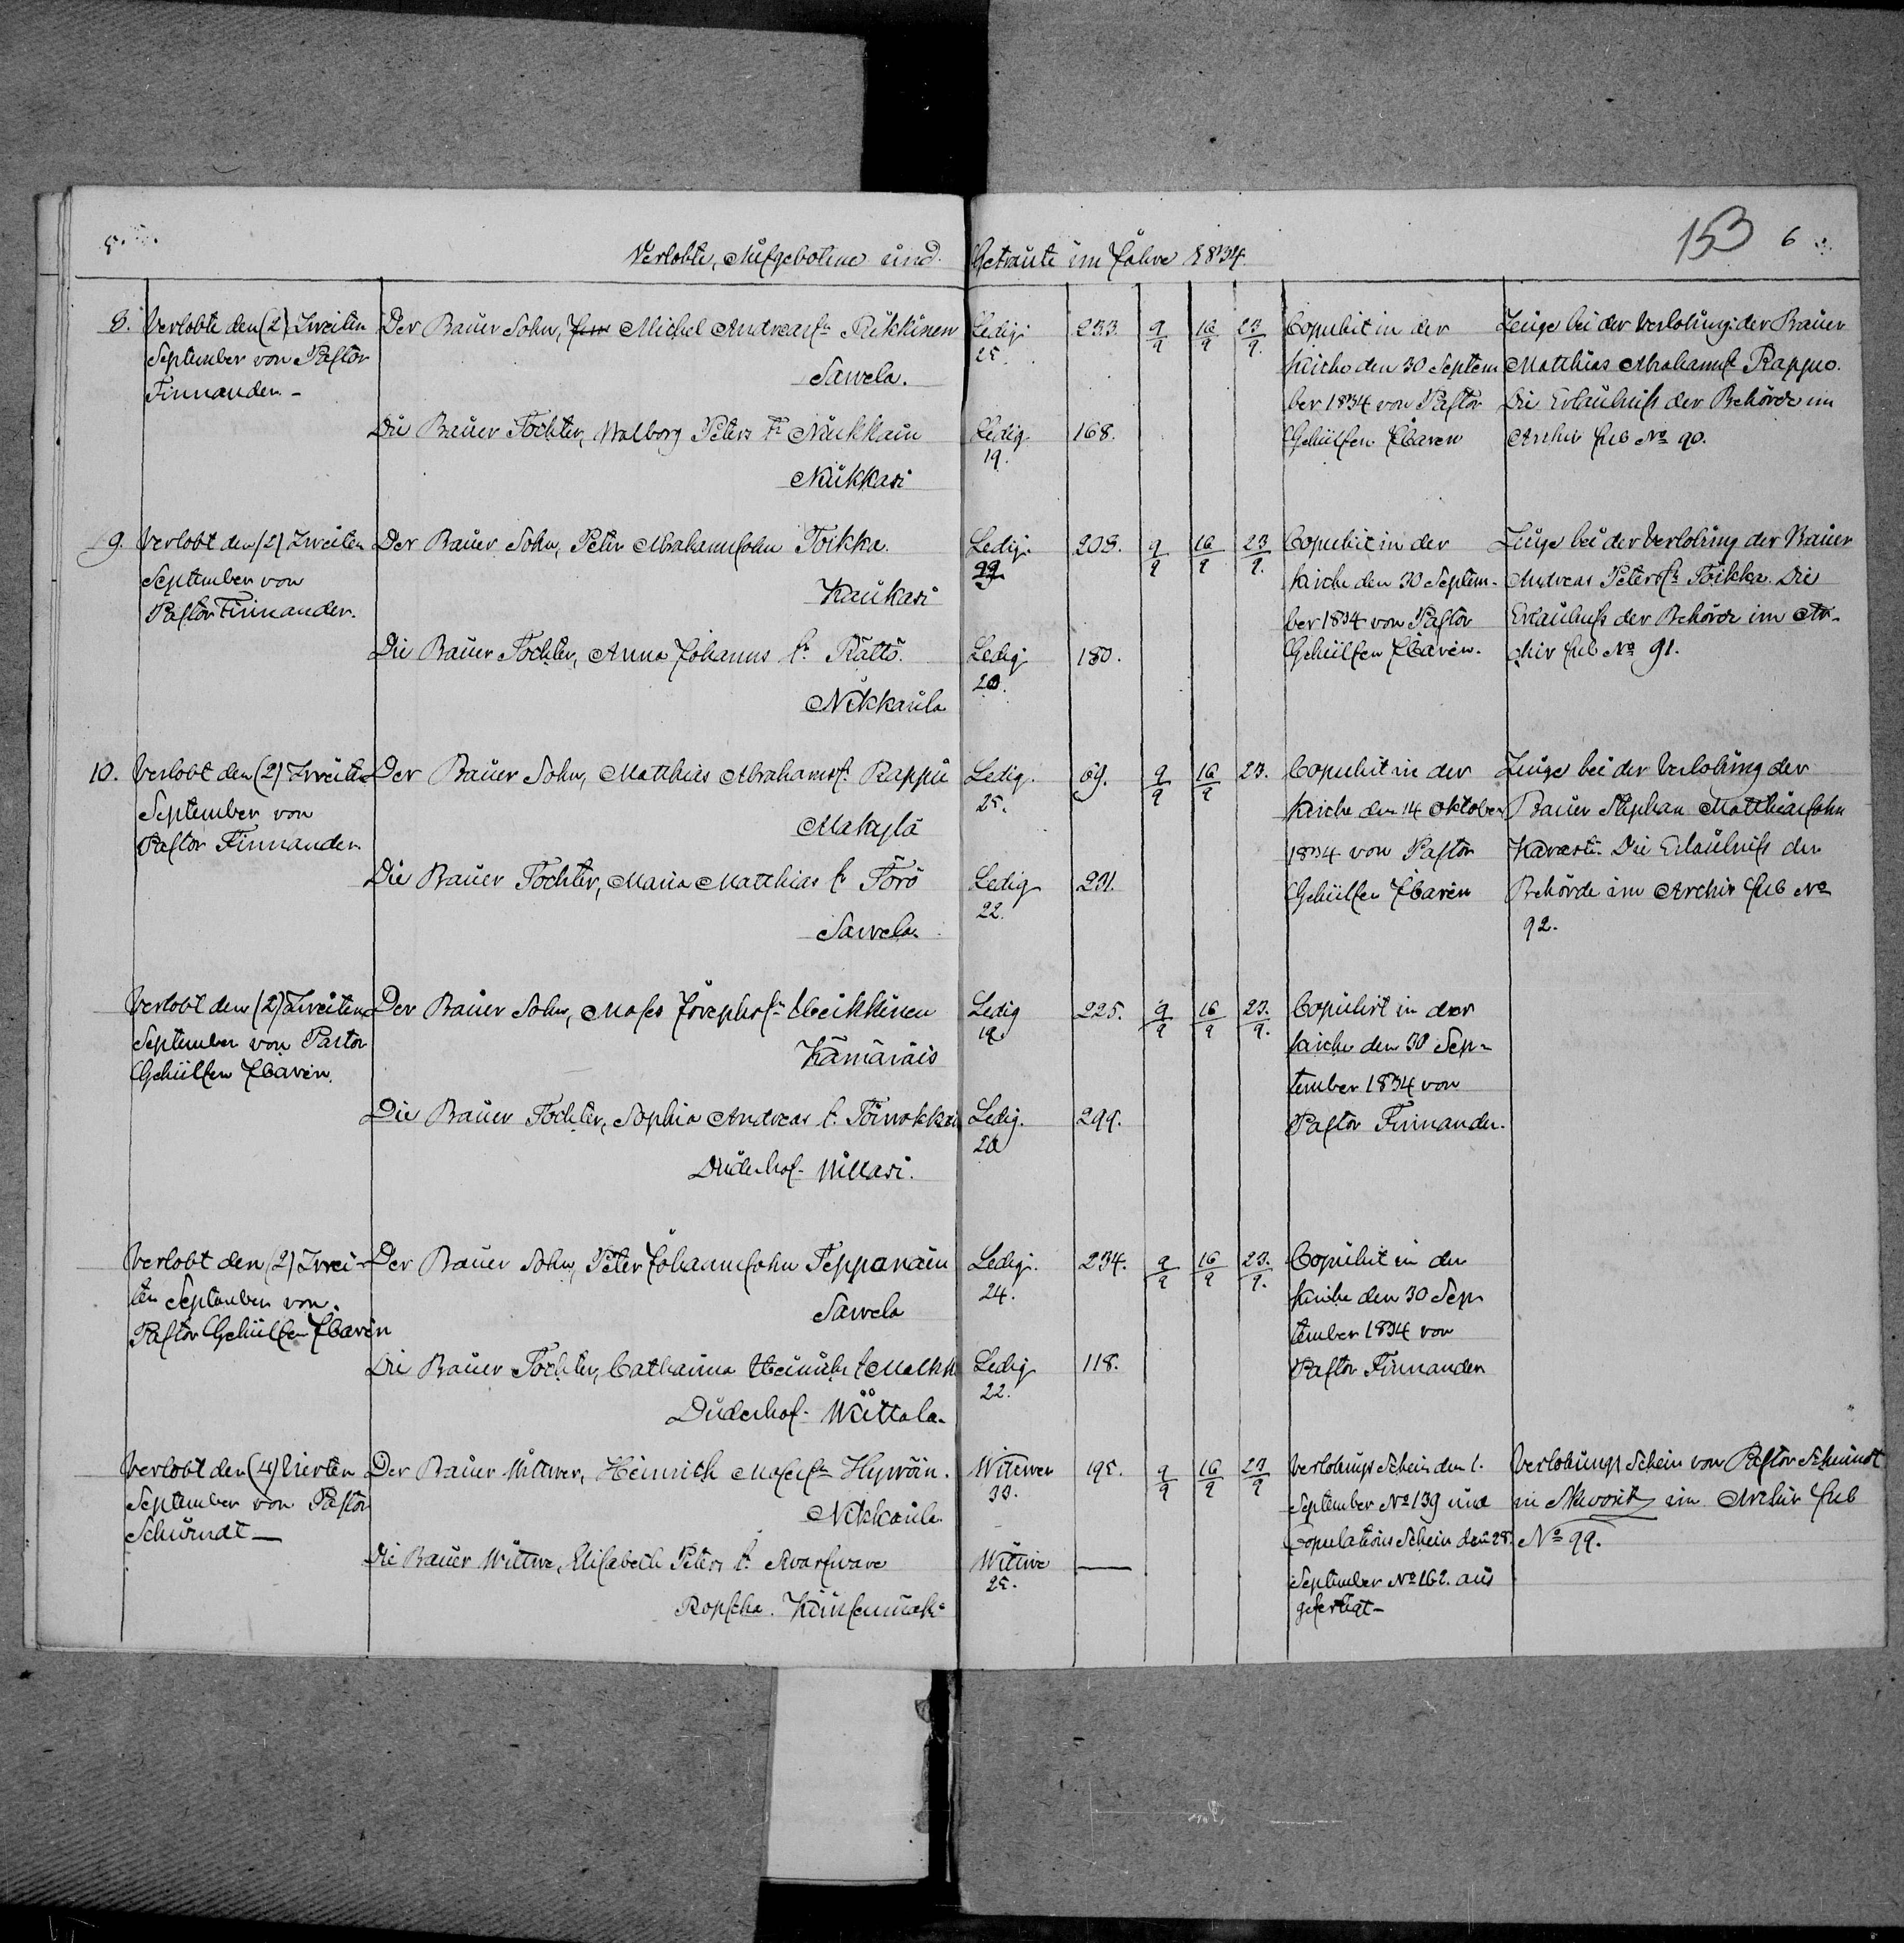 5.
153 6
Verlobte, Aufgebotene und Getraute im Jahre 1834.
8. Verlobte den (2) Zweiten
September von Pastor
Finnander. -
Der Bauer Sohn, Michel Andreas S. Pukkinen
Sawela.
Die Bauer Tochter, Walborg Peters t. Nukkain
Nukkari
Ledig. 233. 9/9 16/9 23/9.
25.
Ledig 168.
19.
Copulirt in der
Kirche den 30 Septem
ber 1834 von Pastor
Gehülfen
Zeuge bei der Verlobung: der Bauer
Matthias Abrahams S. Rappo.
Die Erlaubniß der Behörde im
Archiv sub No 90.
9. Verlobt den (2) Zweiten
September von
Pastor Finnander.
Der Bauer Sohn, Peter Abrahamsohn Toikka.
Kaukasi
Die Bauer Tochter, Anna Johanns t. Rättö.
Nikkaula
Ledig. 203. 9/9 16/9 23/9.
Ledig 180.
20.
Copulirt in der
Kirche den 30 Septem-
ber 1834 von Pastor
Gehülfen
Zeuge bei der Verlobung der Bauer
Andreas Peters S. Toikka. Die
Erlaubniß der Behörde im Ar-
chiv sub No 91.
10. Verlobt den (2) Zweiten
September von
Pastor Finnander.
Der Bauer Sohn, Matthias Abrahams S. Rappu
Makylä
Die Bauer Tochter, Maria Matthias t. Törö
Sawela.
Ledig. 69. 9/9 16/9 23.
25.
Ledig 201.
22.
Copulirt in der
Kirche den 14 Oktober
1834 von Pastor
Gehülfen
Zeuge bei der Verlobung der
Bauer Stephan Matthiassohn
Die Erlaubniß der
Behörde im Archiv sub No
92.
Verlobt den (2) Zweiten
September von Pastor
Gehülfen
Der Bauer Sohn, Moses Josephs S. Heikkinen
Kämäräis
Die Bauer Tochter, Sophia Andreas t.
Duderhof - Willasi.
Ledig 225. 9/9 16/9 23/9.
19.
Ledig. 299.
20
Copulirt in der
Kirche den 30 Sep-
tember 1834 von
Pastor Finnander.
Verlobt den (2) Zwei-
ten September von
Pastor Gehülfen
Der Bauer Sohn, Peter Johannsohn Teppanain
Sawela
Die Bauer Tochter, Catharina Heinrichs t.
Duderhof - Wiittala.
Ledig. 234. 9/9 16/9 23/9.
24.
Ledig 118.
22.
Copulirt in der
Kirche den 30 Sep
tember 1834 von
Pastor Finnander
Verlobt den (4) Vierten
September von Pastor
Schwindt -
Der Bauer Wittwer, Heinrich Moses S. Hywäin.
Nikkaula.
Die Bauer Wittwe, Elisabeth Peters t.
Ropscha.
Wittwer 195. 9/9 16/9 23/9
33.
Wittwe —
25.
Verlobungs Schein den 1.
September No 139 und
Copulations Schein den 28.
September No 162. aus
gefertigt -
Verlobungs Schein von Pastor Schwindt
in Skworitz im Archiv sub
No 99.